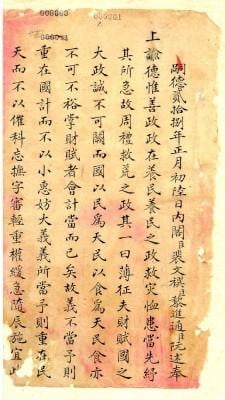 000003
000001
000001
嗣德貳拾捌年正月初陸日內閣臣裴文禩臣黎進通臣阮述奉
上諭德惟善政政在養民養民之政救災恤患當先紓
其所急故周禮救荒之政其一曰薄征夫財賦國之
大政誠不可闕而國以民為天民以食為天民食亦
不可不裕掌財賦者會計當而已矣故義不當予則
重在國計而不以小惠妨大義義所當予則重在民
天而不以催科忘撫字審輕重權緩急隨辰施宜